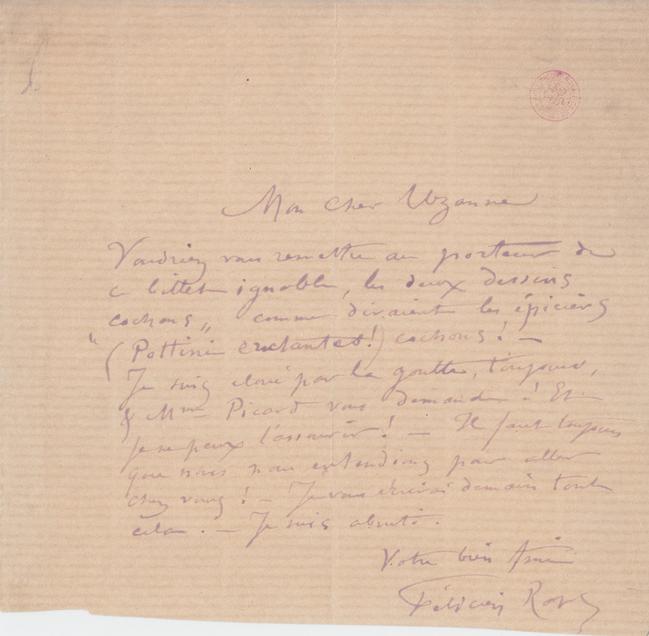 Mon cher Uzanne
Voudriez vous remettre au porteur de
ce billet ignoble, les deux dessins
cochons „ comme diraient les épiciers
" (Pottini exclantet!) cochons! —
Je suis cloué par la goutte, toujours,
& Mme Picard vous demande! Et
je ne peux l'assouvir! — Il faut toujours
que nous nous entendions pour aller
chez vous! — Je vous écrirai demain tout
cela. — Je suis abruti.
Votre bien Ami
Félicien Rops